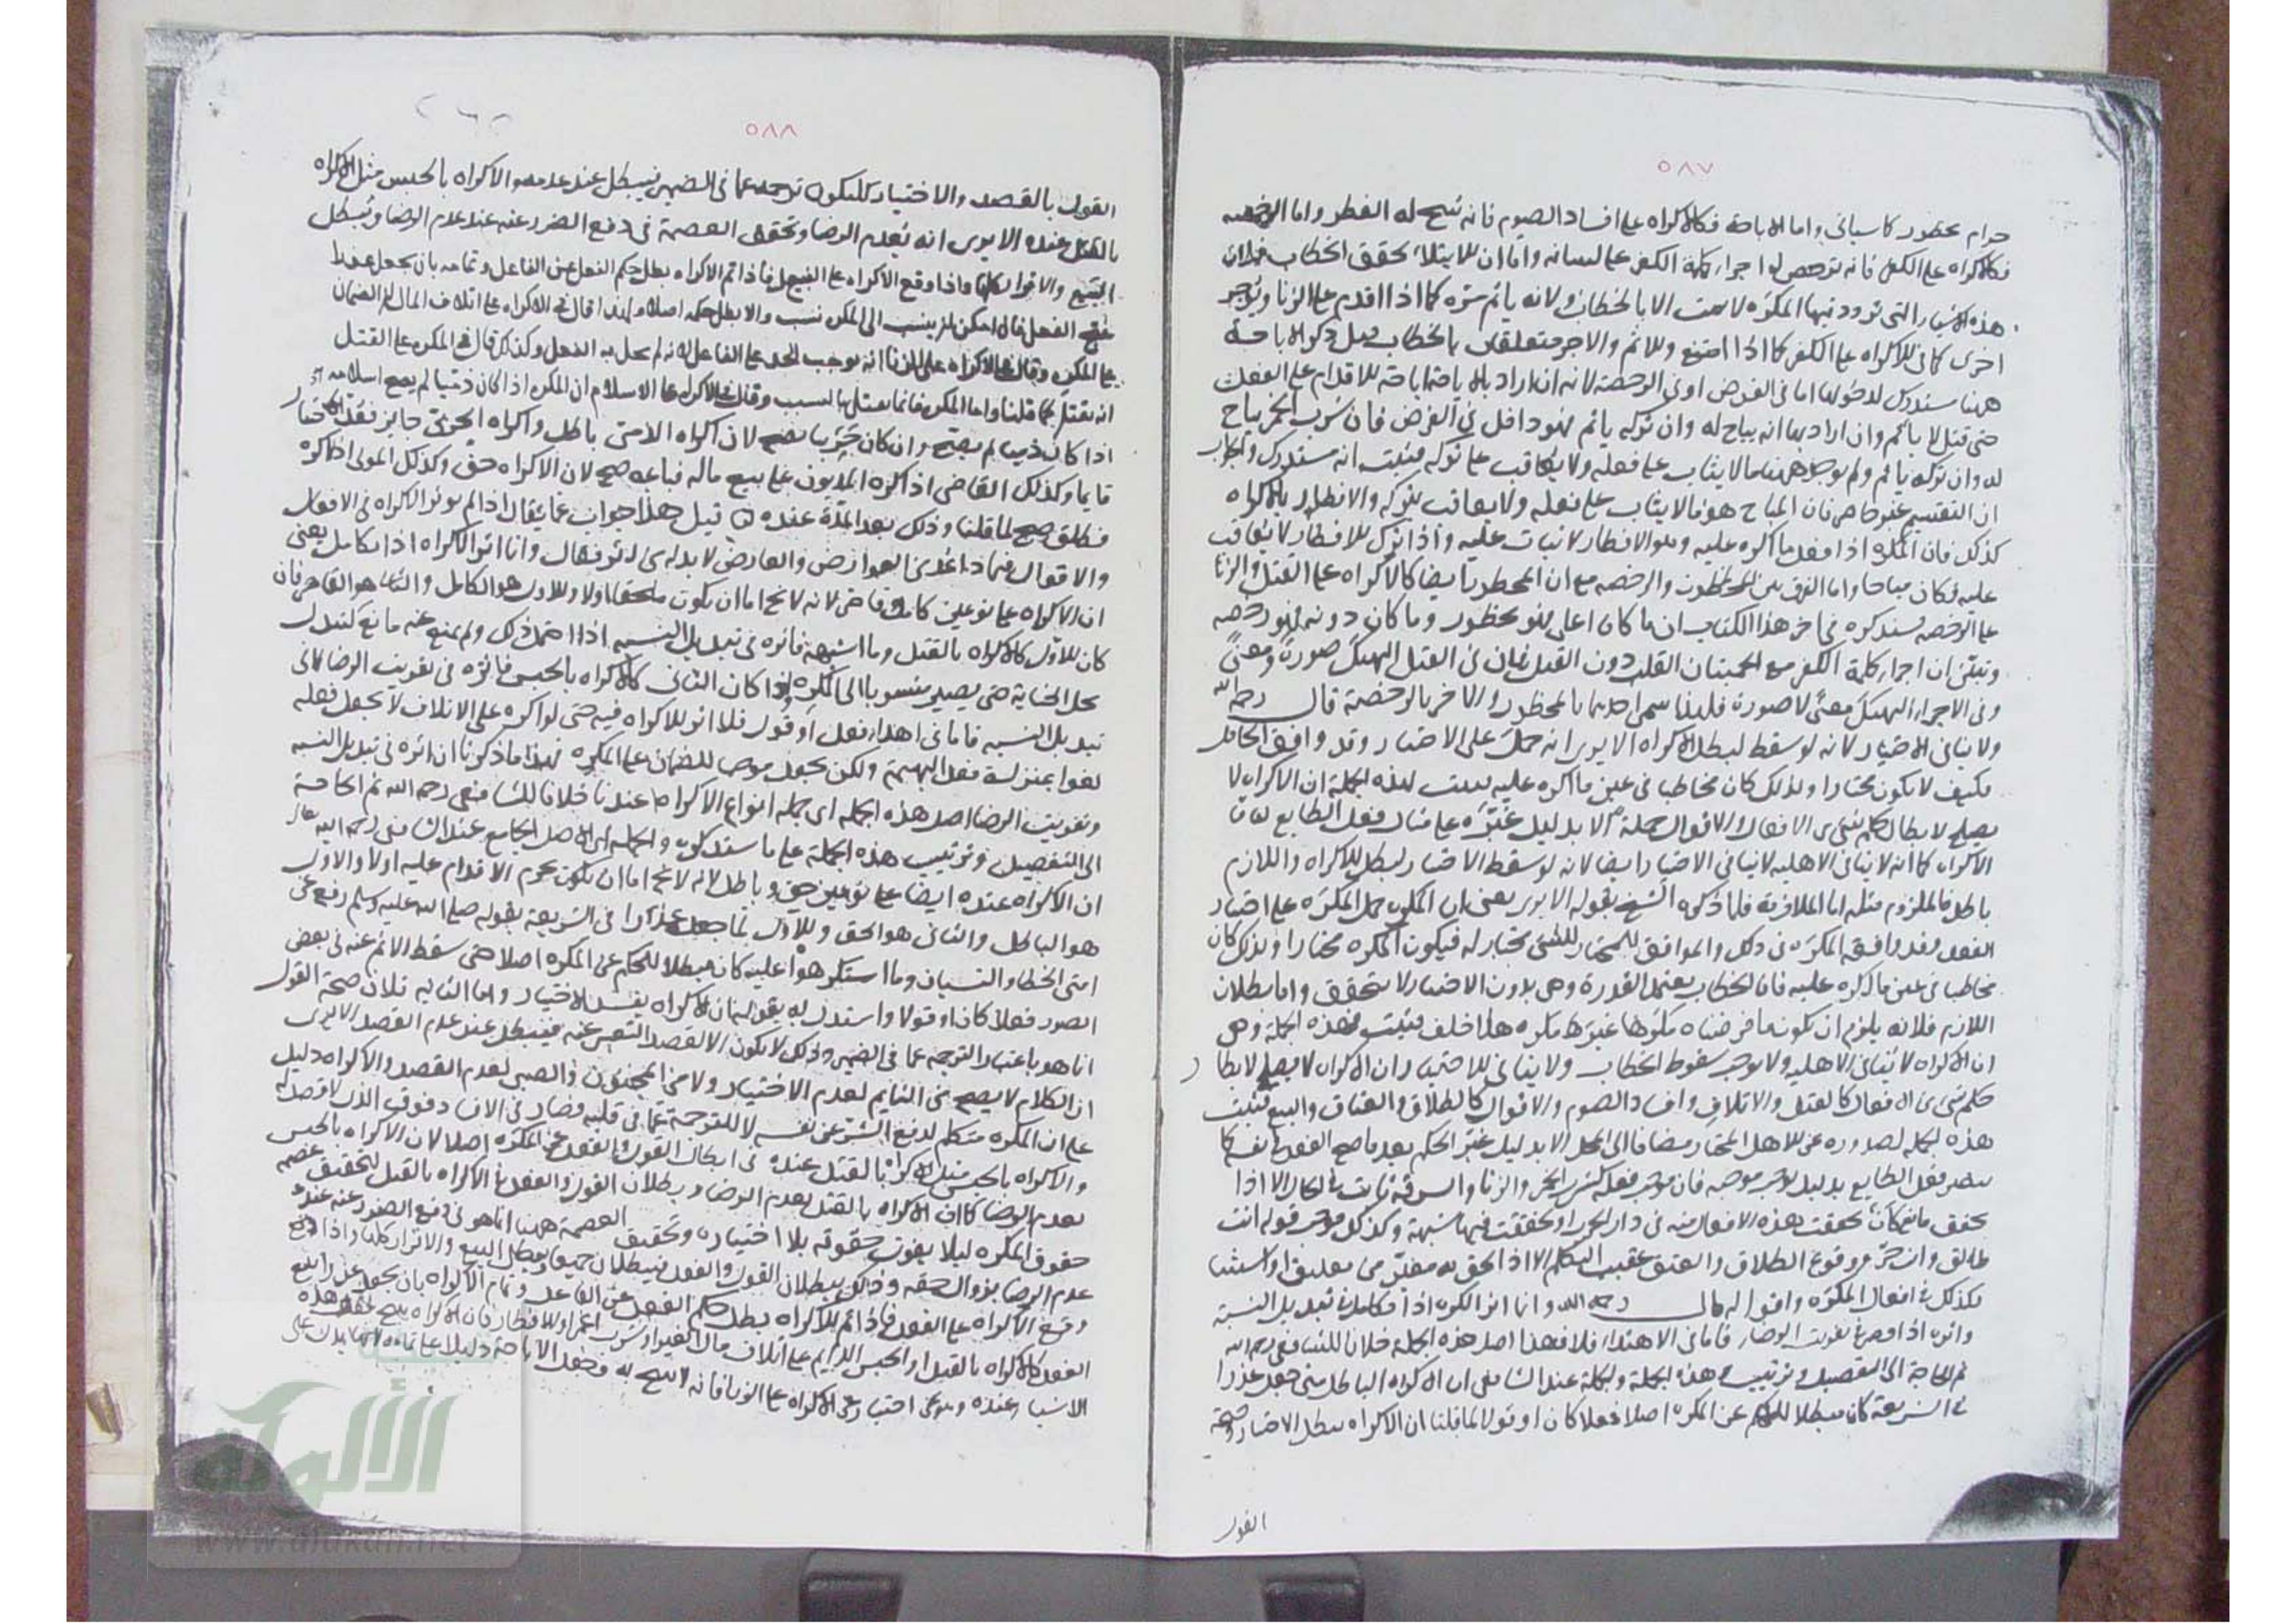 ٥٨٧
حرام محظور كما سيأتي واما الاباحة فكالاكراه على افساد الصوم فانه يبيح له الفطر واما الرخصة
فكالاكراه على الكفر فانه ترخص له اجراء كلمة الكفر على لسانه واما ان الابتلاء تحقق الخطاب فلان
هذه الاشياء التي تردد فيها المكره لا يثبت الا بالخطاب ولانه يأثم مرة كما اذا اقدم على الزنا ويؤجر
اخرى كما في الاكراه على الكفر كما اذا امتنع والاثم والاجر متعلقان بالخطاب قيل ذكر الاباحة
ههنا مستدرك لدخولها اما في الفرض او في الرخصة لانه ان اراد بالاباحة اباحته للاقدام على الفعل
حتى قتل لا يأثم وان اراد بها انه يباح له وان تركه يأثم فهو داخل في الفرض فان شرب الخمر يباح
له وان تركه يأثم ولم يوجد ههنا ما لا يثاب على فعله ولا يعاقب على تركه فثبت انه مستدرك والجواب
ان التقسيم غير حاصر فان المباح هو ما لا يثاب على فعله ولا يعاقب بتركه والافطار بالاكراه
كذلك فان المكره اذا فعل ما اكره عليه وهو الافطار لا يثاب عليه واذا ترك الافطار لا يعاقب
عليه فكان مباحا واما الفرق بين المحظور والرخصة مع ان المحظور ايضا كالاكراه على القتل والزنا
على الرخصة سنذكره في اخر هذا الكتاب ان ما كان اعلى فهو محظور وما كان دونه فهو رخصة
وتبين ان اجراء كلمة الكفر مع اطمينان القلب دون القتل فان في القتل الهتك صورة ومعنى
وفي الاجراء الهتك معنى لا صورة فلهذا سمي احدهما بالمحظور والاخر بالرخصة قال رحمه الله
ولا ينافي الاختيار لانه لو سقط لبطل الاكراه الا يرى انه حمل على الاختيار وقد وافق الحامل
فكيف لا يكون مختارا ولذلك كان مخاطبا في عين ما اكره عليه فثبت بهذه الجملة ان الاكراه لا
يصلح لابطال حكم شيء من الافعال والاقوال جملة الا بدليل غيره على مثال فعل الطايع لان
الاكراه كما انه لا ينافي الاهلية لا ينافي الاختيار ايضا لانه لو سقط الاختيار لبطل الاكراه واللازم
باطل فالملزوم مثله اما الملازمة فلما ذكره الشيخ بقوله الا يرى يعني ان المكره حمل المكره على اختيار
الفعل وقد وافقه المكره في ذلك والموافق للمختار للشيء مختار له فيكون المكره مختارا ولذلك كان
مخاطبا في عين ما اكره عليه فان الخطاب يعتمد القدرة وهي بدون الاختيار لا يتحقق واما بطلان
اللازم فلانه يلزم ان يكون ما فرضناه مكرها غير مكره هذا خلف فثبت بهذه الجملة وهي
ان الاكراه لا ينافي الاهلية ولا يوجب سقوط الخطاب ولا ينافي الاختيار ان الاكراه لا يصلح لابطال
حكم شيء من الافعال كالقتل والاتلاف وافساد الصوم والاقوال كالطلاق والعتاق والبيع فثبت
هذه الجملة لصدوره عن الاهل المختار مضافا الى المحل الا بدليل غير الحكم بعد ما صح الفعل في نفسه كما
يتغير فعل الطايع بدليل يغير موجبه فان موجب فعله كشرب الخمر والزنا والسرقة ثابت في الحال الا اذا
تحقق مانع كان تحققت هذه الافعال منه في دار الحرب او تحققت فيها شبهة وكذلك موجب قوله انت
طالق وانت حر وقوع الطلاق والعتق عقيب التكلم الا اذا الحق به مغير من تعليق او استثناء
فكذلك في افعال المكره واقواله قال رحمه الله وانما اثر الكره اذا تكامل في تبديل النسبة
واثره اذا قصر في تفويت الرضا فاما في الاهدار فلا فهذا اصل هذه الجملة خلافا للشافعي رحمه الله
ثم الحاجة الى التفصيل وترتيب هذه الجملة والجملة عند الشافعي ان الاكراه الباطل متى جعل عذرا
في الشريعة كان مبطلا للحكم عن المكره اصلا فعلا كان او قولا لما قلنا ان الاكراه يبطل الاختيار وصحة
القول
٥٨٨
القول بالقصد والاختيار ليكون ترجمة عما في الضمير فيبطل عند عدمه والاكراه بالحبس مثل الاكراه
بالقتل عنده الا يرى انه يعدم الرضا وتحقق العصمة في دفع الضرر عنه عند عدم الرضا ويبطل
البيع والاقوال كلها واذا وقع الاكراه على الفعل فاذا تم الاكراه بطل حكم الفعل عن الفاعل وتمامه بان يجعل عذرا
يبيح الفعل فان امكن ان ينسب الى المكره نسب والا بطل حكمه اصلا ولهذا قال في الاكراه على اتلاف المال ان الضمان
على المكره وقال في الاكراه على الزنا انه يوجب الحد على الفاعل لانه لم يحل به الفعل وكذلك قال في المكره على القتل
انه يقتل لما قلنا واما المكره فانما يقتل بالتسبيب وقال في الاكراه على الاسلام ان المكره اذا كان ذميا لم يصح اسلامه
اذا كان ذميا لم يصح وان كان حربيا يصح لان اكراه الذمي باطل واكراه الحربي جايز فعد الاختيار
قايما وكذلك القاضي اذا اكره المديون على بيع ماله فباعه صح لان الاكراه حق وكذلك المولى اذا اكره
فطلق صح لما قلنا وذلك بعد المدة عنده قيل هذا جواب عما يقال اذا لم يؤثر الاكراه في الافعال
والاقوال فيماذا
ان الاكراه على نوعين كامل وقاصر لانه لا يخ اما ان يكون ملجئا اولا والاول هو الكامل والثاني هو القاصر فان
كان الاول كالاكراه بالقتل وما اشبهه فاثره في تبديل النسبة اذا احتمل ذلك ولم يمنع عنه مانع كتبدل
محل الجناية حتى يصير منسوبا الى المكره واذا كان الثاني كالاكراه بالحبس فاثره في تفويت الرضا لا في
تبديل النسبة فاما في اهدار فعل او قول فلا اثر للاكراه فيه حتى لو اكره على الاتلاف لا يجعل فعله
لغوا بمنزلة فعل البهيمة ولكن يجعل موجبا للضمان على المكره فهذا ما ذكرنا ان اثره في تبديل النسبة
وتفويت الرضا اصل هذه الجملة اي جملة انواع الاكراه عندنا خلافا للشافعي رحمه الله ثم الحاجة
الى التفصيل وترتيب هذه الجملة على ما سنذكره والجملة اي الاصل الجامع عند الشافعي رحمه الله
ان الاكراه عنده ايضا على نوعين حق وباطل لانه لا يخ اما ان يكون يحرم الاقدام عليه اولا والاول
هو الباطل والثاني هو الحق والاول لما جعل عذرا في الشريعة بقوله صلى الله عليه وسلم رفع عن
امتي الخطأ والنسيان وما استكرهوا عليه كان مبطلا للحكم عن المكره اصلا حتى سقط الاثم عنه في بعض
الصور فعلا كان او قولا واستدل له بقوله ان الاكراه يفسد الاختيار واما الثانية فلان صحة القول
انما هو باعتبار الترجمة عما في الضمير وذلك لا يكون الا لقصد التعبير عنه فيبطل عند عدم القصد الا يرى
ان الكلام لا يصح من النايم لعدم الاختيار ولا من المجنون والصبي لعدم القصد والاكراه دليل
على ان المكره متكلم لدفع الشر عن نفسه لا للترجمة عما في قلبه فصار في الافساد فوق الذي لا قصد له
والاكراه بالحبس مثل الاكراه بالقتل عنده في ابطال القول والفعل عن المكره اصلا لان الاكراه بالحبس
يعدم الرضا كما ان الاكراه بالقتل يعدم الرضا وبطلان القول والفعل في الاكراه بالقتل لتحقيق عصمة
حقوق المكره ليلا يفوت حقوقه بلا اختياره وتحقيق العصمة ههنا انما هو في دفع الضرر عنه عند
عدم الرضا بزوال حقه وذلك ببطلان القول والفعل فيبطلان جميعا ويبطل البيع والاقرار كلها واذا وقع
وقع الاكراه على الفعل فاذا تم الاكراه بطل حكم الفعل عن الفاعل وتمام الاكراه بان يجعل عذرا يبيح
الفعل كالاكراه بالقتل او الحبس الدايم على اتلاف مال الغير او شرب الخمر او الافطار فان الاكراه يبيح هذه
الاشياء عنده
الألوكة
www.alukah.net